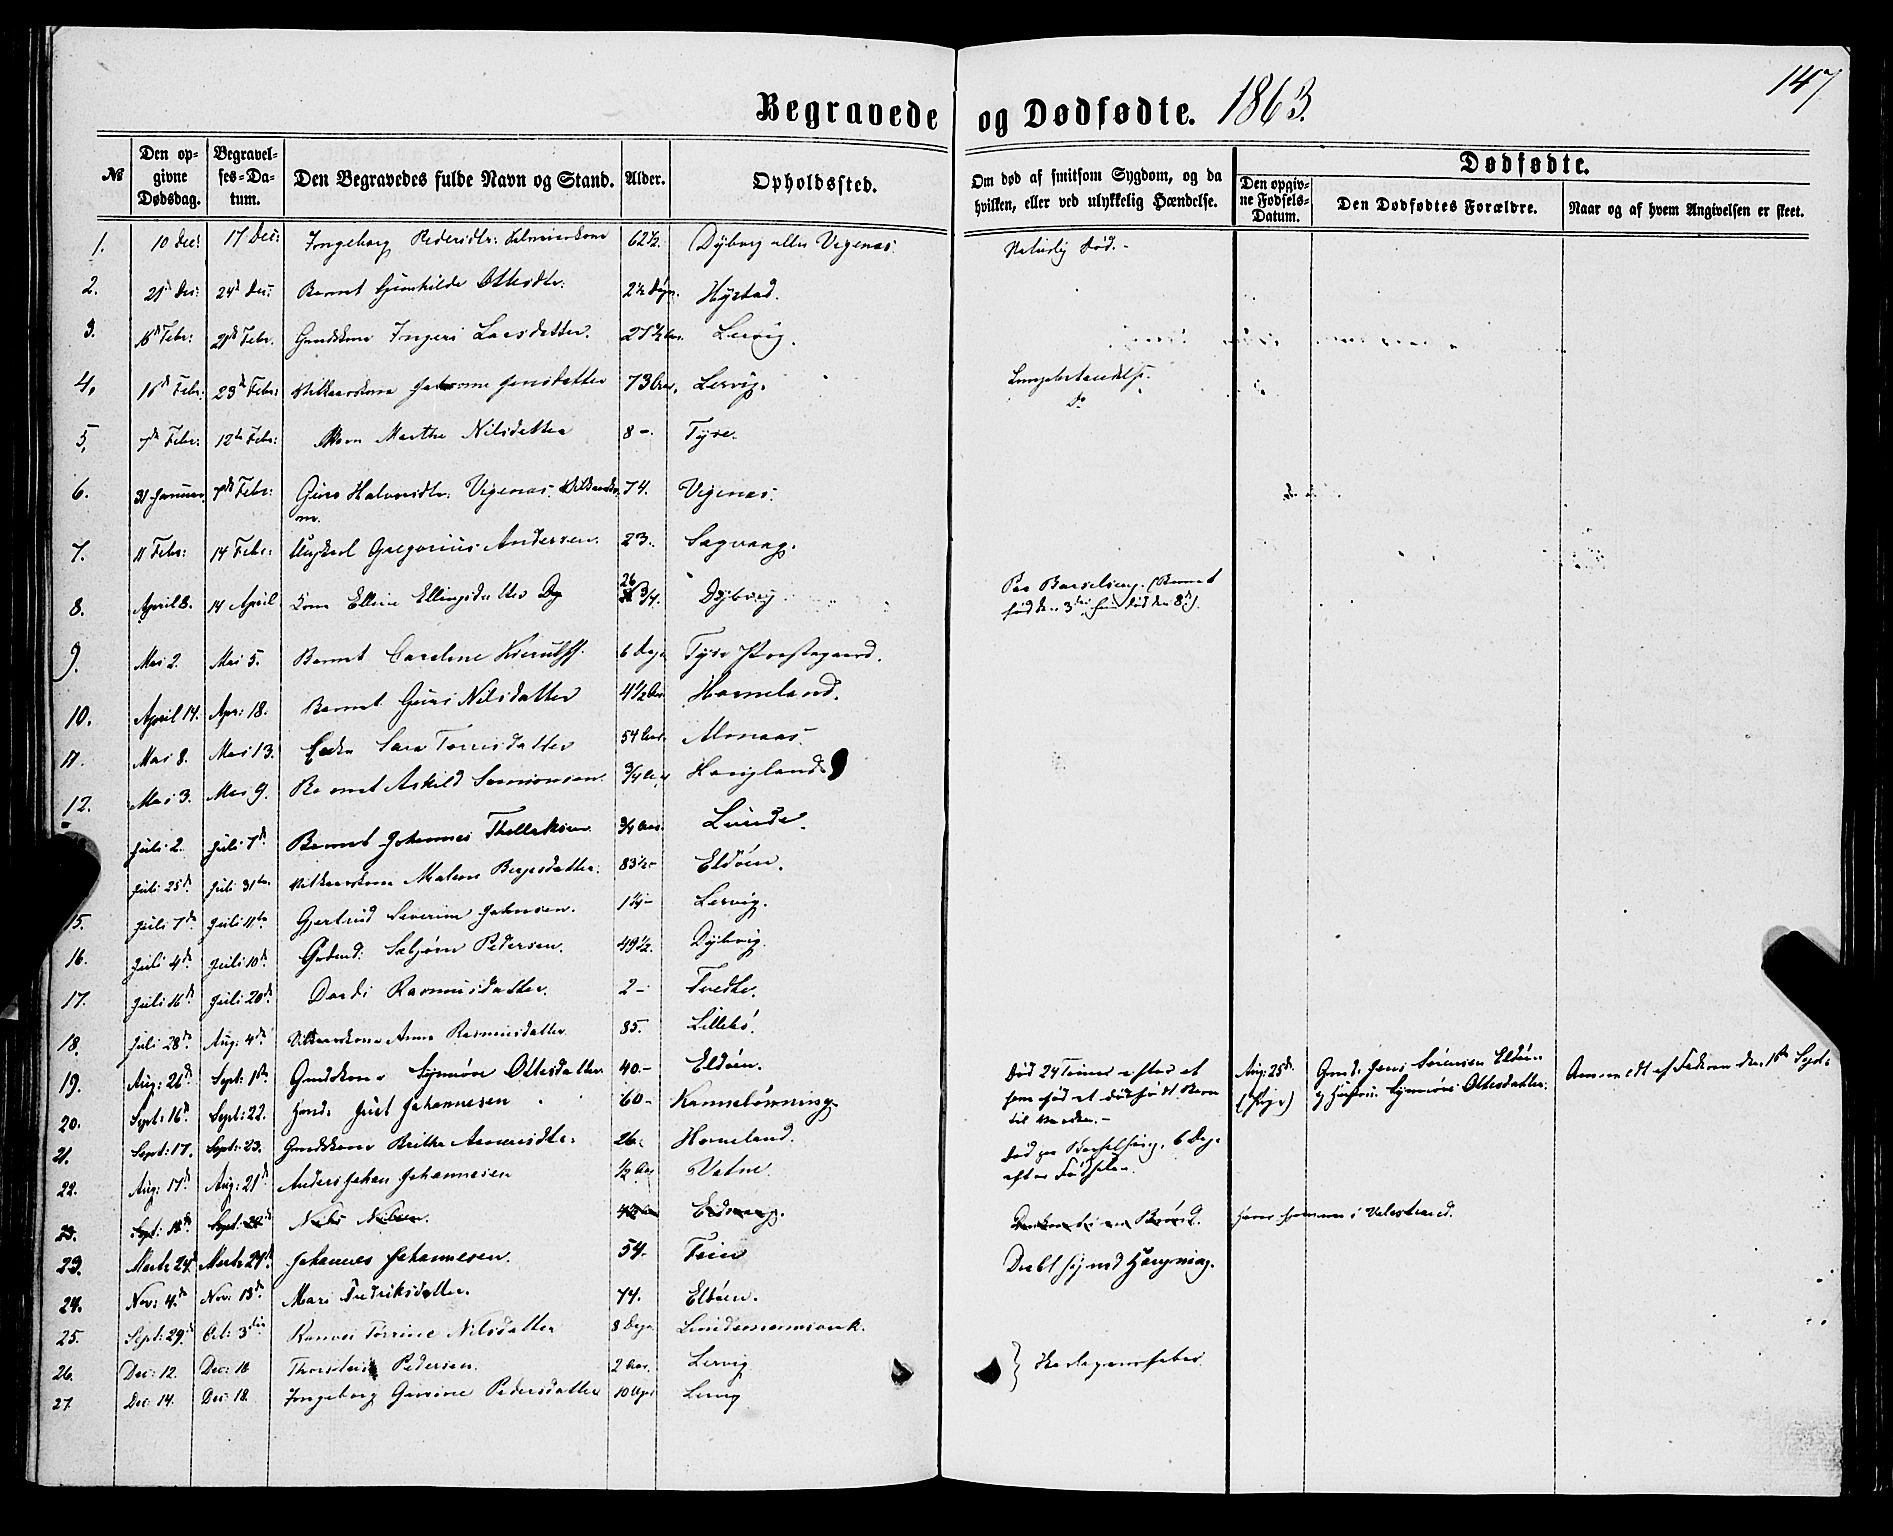 147
Begravede og Dødfødte. 1863.
№ Den opgivne Dødsdag. Begravelses-Datum. Den Begravedes fulde Navn og Stand. Alder. Opholdssted. Om død af smitsom Sygdom, og da hvilken, eller ved ulykkelig Hændelse. Dødfødte.
Den opgivne Fødsels-Datum. Den Dødfødtes Forældre. Naar og af hvem Angivelsen er skeet.
1. 10 Dec: 17 Dec: Ingeborg Pedersdtr: 62½. Dybvig Vegenas. Naturlig Død.-
2. 21 Dec: 24d Dec: Barnet Gunhilde Ottesdtr: 2½ Hystad.
3. 16d Febr: 21d Febr. Gmdskone Ingeri Larsdatter. 27½ Lervig.
4. 16d Febr: 23d Febr: Vilkaarskone Jensdatter 73 Aar. Lervig. Lungebetændelse.
do
5. 7d Febr: 12te Febr: Marthe Nilsdatter 8 -. Tyse.
6. 31 Januar. 7d Febr: Guro Halvorsdtr: Vegenas. 74. Vegenas.
7. 11 Febr: 14 Febr: Ungkarl Gregorius Andersen. 23. Sagvaag.
8. April 8. 14 April Kone Elline Ellingsdatter 26 3/4. Dybvig Paa Barselseng. (Barnet
født den 3die død den 8d).
9. Mai 2. Mai 5. Barnet Caroline Kierulff. 6 Dage Tyse Præstegaard.
10. April 14. Apr: 18. Barnet Guri Nilsdatter 4½ Aar. Horneland.
11. Mai 8. Mai 13. Sara Torrisdatter 54 Aar. Almaas.
12. Mai 3. Mai 9. Barnet Askild Samsonsen. 3/4 Aar Hauglands
Juli 2. Juli 7d Barnet Johannes Thollaksen. 3/4 Aar. Lunde.
Juli 25d Juli 31te Vilkaarskone Malene Børgesdatter. 83½- Eldøen.
15. Juli 7de Juli 11te Gjertrud Severine Johnsen. 1¼- Lervig.
16. Juli 4de Juli 10de Gmd: Sæbjørn Pedersen. 49½. Dybvig.
17. Juli 16d Juli 20de Dordi Rasmusdatter. 2- Tvedte.
18. Juli 28de Aug: 4de Vilkaarskone Anna Rasmusdatter 85. Lillebø.
19. Aug: 26d Sept: 1ste Gmdskone Synnøve Ottesdatter 40.- Eldøen. Død 24 Timer efter at
hun fød et dødfødt Barn
til Verden.- Aug: 25d.
(Pige) Gmd: Jens Sørensen Eldøen
og Hustru Synnøve Ottesdatter. Anmeldt af Faderen den 1ste Sept:
20. Sept: 16d Sept: 22. Gurt Johannesen 60- Kannebønning.
21. Sept: 17. Sept: 23. Gmdskone Brithe Arnesdtr: 26. Horneland. Død paa Barselseng, 6 Dage
efter Fødselen.
22. Aug: 17d Aug: 21d Anders Johan Johannesen ½ Aar Vatne
23. Sept: 18d Sept: 22d Nils Nilsen. Eidsvaag. Druknet i en Brønd. hører hjemme i Valestrand.
23. Marts 24d Marts 27d Johannes Johannesen. 54. Føien Dræbt sig ved Hængning.
24. Nov: 4de Nov: 13d Mari Fredriksdatter. 74. Eldøen.
25. Sept: 29d Oct: 3die Ranvei Torrine Nilsdatter 8 Dage Lundemannsverk.
26. Dec: 12. Dec: 16 Thorsten Pedersen. 2 Aar. Lervig } Skarlagensfeber.
27. Dec: 14. Dec: 18. Ingeborg Gurine Pedersdatter 10 Uger Lervig